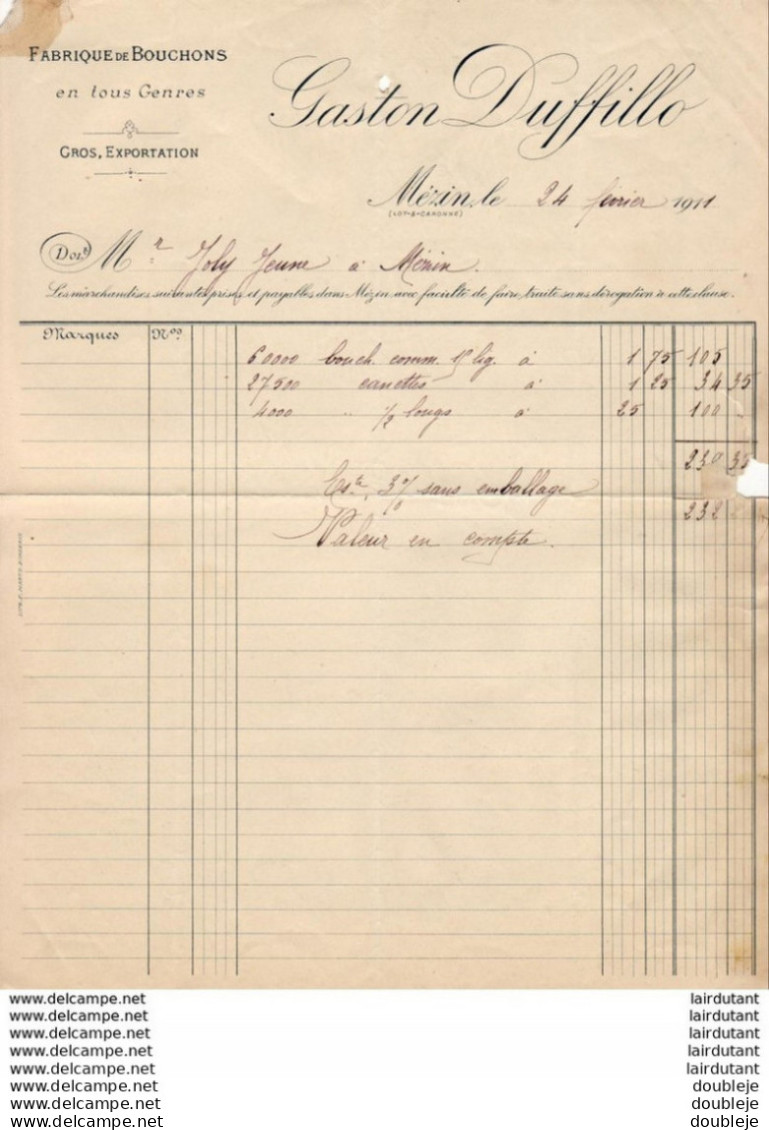 FABRIQUE DE BOUCHONS
en tous Genres
GROS, EXPORTATION
Gaston Duffillo
Mézin, le 24 février 1911
(LOT-&-GARONNE)
Doit Mr Joly Jeune à Mézin.
Les marchandises suivantes prises et payables dans Mézin avec faculté de faire traite sans dérogation à cette clause.
Marques Nos
60000 bouch. comm. lig. à 1 75 105
27500 canettes à 1 25 34 35
4000 " 1/2 longs à 25 100 -
230 35
Este 3% sans emballage
232
Valeur en compte.
www.delcampe.net lairdutant
www.delcampe.net lairdutant
www.delcampe.net lairdutant
www.delcampe.net lairdutant
www.delcampe.net lairdutant
www.delcampe.net doubleje
www.delcampe.net doubleje
www.delcampe.net doubleje